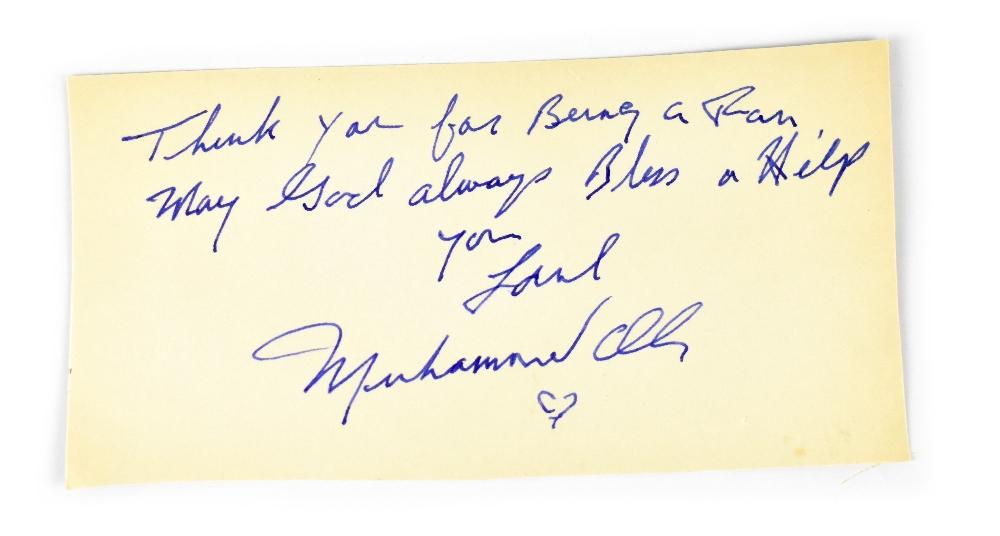 Thank you for Being a Fan,
May God always Bless a Help
you
Love
Muhammad Ali